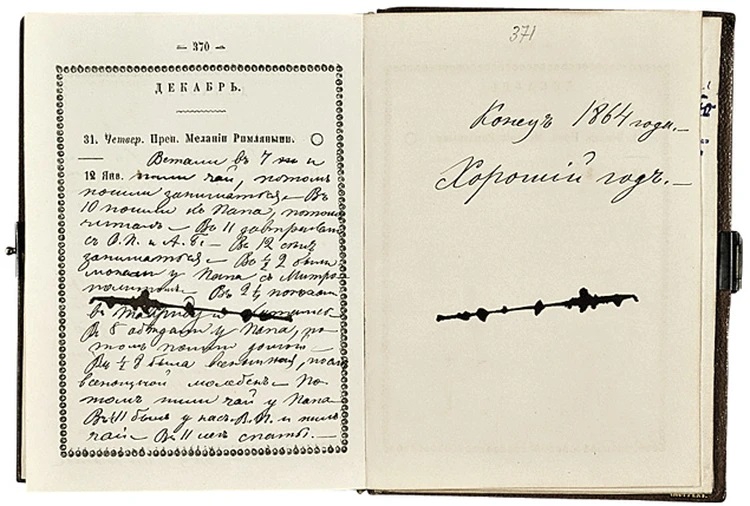 — 370 —
ДЕКАБРЬ.
31. Четвер. Преп. Меланіи Римляныни.
Встали въ 7 ч и
12 Янв. пили чай, потомъ
пошли заниматься — Въ
10 пошли къ Папа, потомъ
читалъ — Въ 11 завтракали
съ В.П. и А.Б. — Въ 12 опять
заниматься — Въ ½ 2 были
у Папа съ Митро-
политомъ — Въ 2 ¼ поехали
въ и
Въ 5 обедали у Папа, по-
томъ пошли домой —
Въ ½ 8 была всенощная, после
всенощной молебенъ — По-
томъ пили чай у Папа
Въ 11 былъ у насъ В.П. и пилъ
чай — Въ 11 легъ спать. —
371
Конецъ 1864 года. —
Хорошій годъ. —